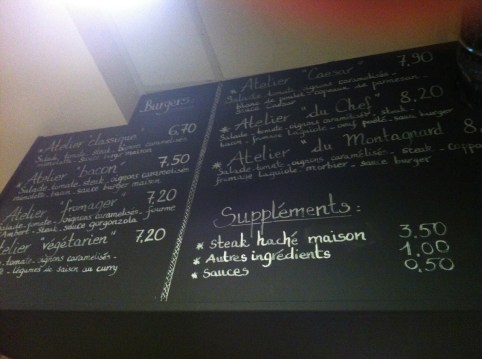 Burgers
Atelier "classique" 6.70
Salade, tomate, oignons caramélisés
steak, sauce burger maison
Atelier "bacon" 7.50
Salade, tomate, steak, oignons caramélisés
bacon, sauce burger maison
Atelier "fromager" 7.20
Salade, tomate, oignons caramélisés, fourme
steak, sauce gorgonzola
Atelier "végétarien" 7.20
tomate, oignons caramélisés
légumes de saison au curry
* Atelier "Caesar" 7.90
Salade, tomate, oignons caramélisés
poulet, copeaux de parmesan
sauce caesar
* Atelier "du Chef" 8.20
Salade, tomate, oignons caramélisés, steak
bacon, fromage Laguiole, oeuf poché, sauce burger
* Atelier "du Montagnard" 8.
Salade, tomate, oignons caramélisés, steak
fromage Laguiole, morbier, sauce burger
Suppléments :
* Steak haché maison 3.50
* Autres ingrédients 1.00
* Sauces 0.50